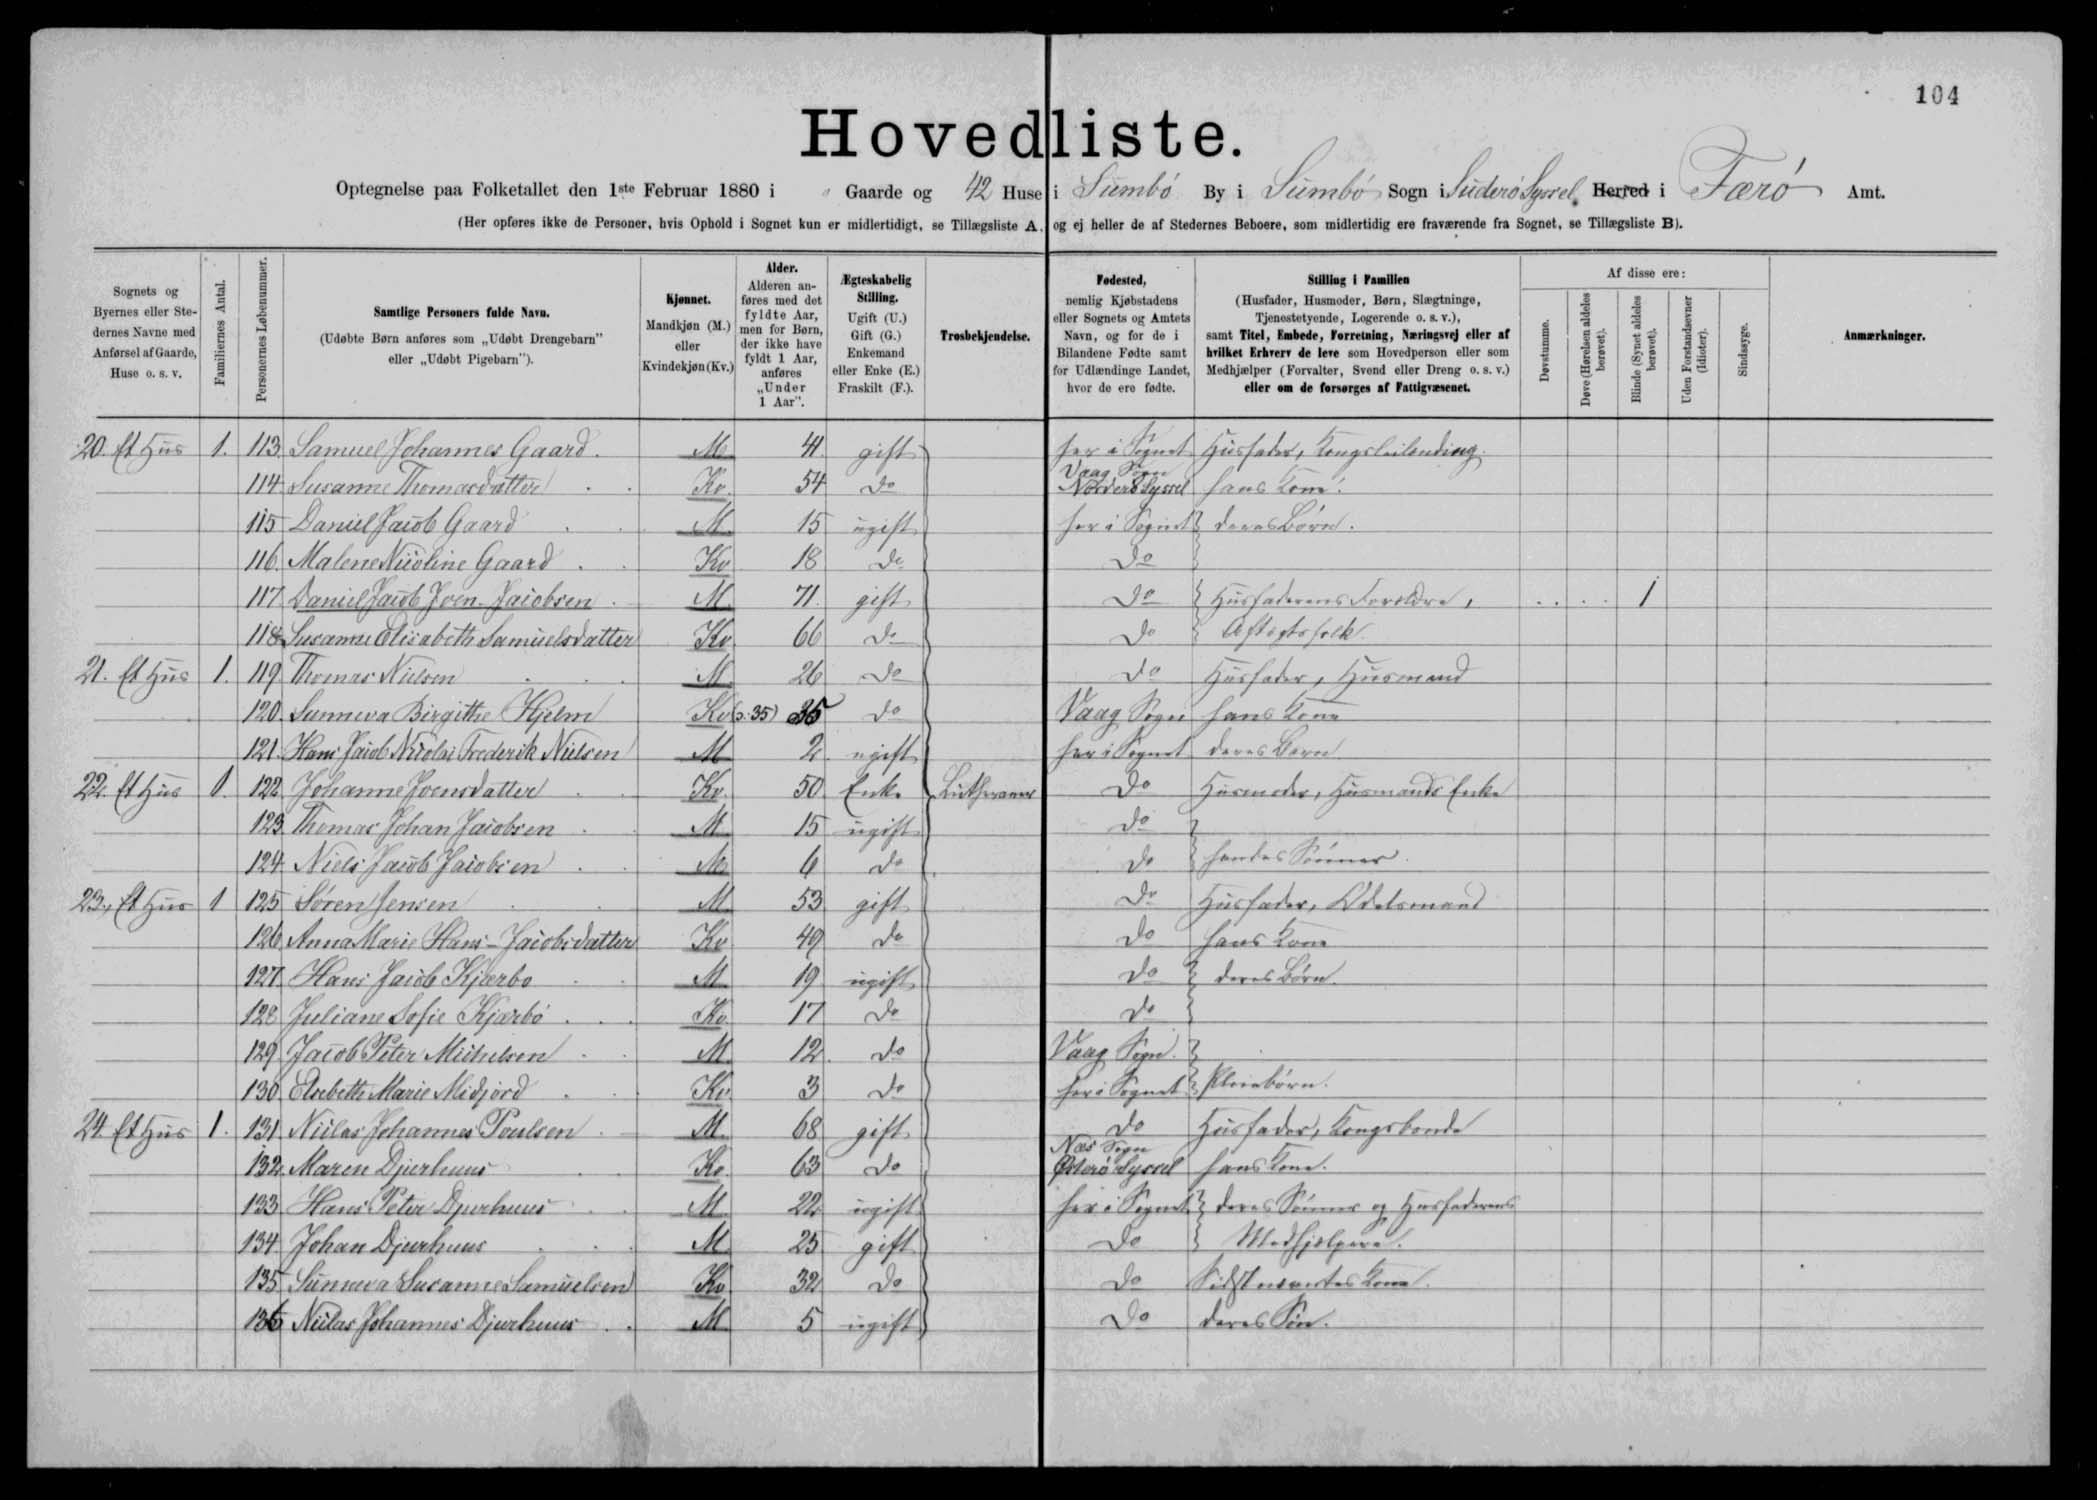 104
Hovedliste.
Optegnelse paa Folketallet den 1ste Februar 1880 i „ Gaarde og 42 Huse i Sumbö By i Sumbö Sogn i Suderö Syssel Herred i Færö Amt.
(Her opføres ikke de Personer, hvis Ophold i Sognet kun er midlertidigt, se Tillægsliste A, og ej heller de af Stedernes Beboere, som midlertidig ere fraværende fra Sognet, se Tillægsliste B).
Sognets og Byernes eller Stedernes Navne med Anførsel af Gaarde, Huse o. s. v.
Familiernes Antal.
Personernes Løbenummer.
Samtlige Personers fulde Navn.
(Udøbte Børn anføres som „Udøbt Drengebarn" eller „Udøbt Pigebarn").
Kjønnet.
Mandkjøn (M.) eller Kvindekjøn (Kv.)
Alder.
Alderen anføres med det fyldte Aar, men for Børn, der ikke have fyldt 1 Aar, anføres „Under 1 Aar".
Ægteskabelig Stilling.
Ugift (U.) Gift (G.) Enkemand eller Enke (E.) Fraskilt (F.).
Trosbekjendelse.
Fødested,
nemlig Kjøbstadens eller Sognets og Amtets Navn, og for de i Bilandene Fødte samt for Udlændinge Landet, hvor de ere fødte.
Stilling i Familien
(Husfader, Husmoder, Børn, Slægtninge, Tjenestetyende, Logerende o. s. v.),
samt Titel, Embede, Forretning, Næringsvej eller af hvilket Erhverv de leve som Hovedperson eller som Medhjælper (Forvalter, Svend eller Dreng o. s. v.) eller om de forsørges af Fattigvæsenet.
Af disse ere:
Døvstumme.
Døve (Hørelsen aldeles berøvet).
Blinde (Synet aldeles berøvet).
Uden Forstandsevner (Idioter).
Sindssyge.
Anmærkninger.
20. Et Hus 1. 113. Samuel Johannes Gaard. M 41 gift her i Sognet Husfader, Kongsleilending.
114 Susanne Thomasdatter Kv. 54 do Vaag Sogn Norderö Syssel hans Kone.
115 Daniel Jacob Gaard M. 15 ugift her i Sognet deres Börn.
116. Malene Nicoline Gaard Kv 18 do do
117 Daniel Jacob Joen-Jacobsen M. 71. gift do Husfaderens Forældre, 1
118 Susanne Elisabeth Samuelsdatter Kv. 66 do do Aftægtsfolk.
21. Et Hus 1. 119 Thomas Nielsen M. 26 do do Husfader, Husmand
120. Sunneva Birgithe Hjelm Kv (o: 35) 35 do Vaag Sogn hans Kone
121. Hans Jacob Nicolai Frederik Nielsen M 2. ugift her i Sognet deres Barn
22. Et Hus 1. 122. Johanne Joensdatter Kv. 50 Enke Lutheraner do Husmoder, Husmands Enke
123. Thomas Johan Jacobsen M 15 ugift do
124. Niels Jacob Jacobsen M 6 do do hendes Sönner.
23., Et Hus 1 125 Sören Jensen M. 53 gift do Husfader, Odelsmand
126 Anna Marie Hans-Jacobsdatter Kv 49 do do hans Kone
127. Hans Jacob Kjærbo M 19 ugift do deres Börn.
128 Juliane Sofie Kjærbö Kv. 17 do do
129 Jacob Peter Michelsen M. 12. do Vaag Sogn.
130. Elsebeth Marie Midjord Kv. 3 do her i Sognet Pleiebörn.
24. Et Hus 1. 131 Niclas Johannes Poulsen M. 68 gift do Husfader, Kongsbonde
132. Maren Djurhuus Kv. 63 do Næs Sogn Österö Syssel hans Kone.
133 Hans Peter Djurhuus M 22 ugift her i Sognet deres Sönner og Husfaderens
134 Johan Djurhuus M. 25 gift do Medhjelpere.
135 Sunneva Susanne Samuelsen Kv 32 do do Sidstnævntes Kone.
136 Niclas Johannes Djurhuus M 5 ugift do deres Sön.